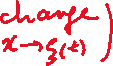 change
x → ξ(t) )